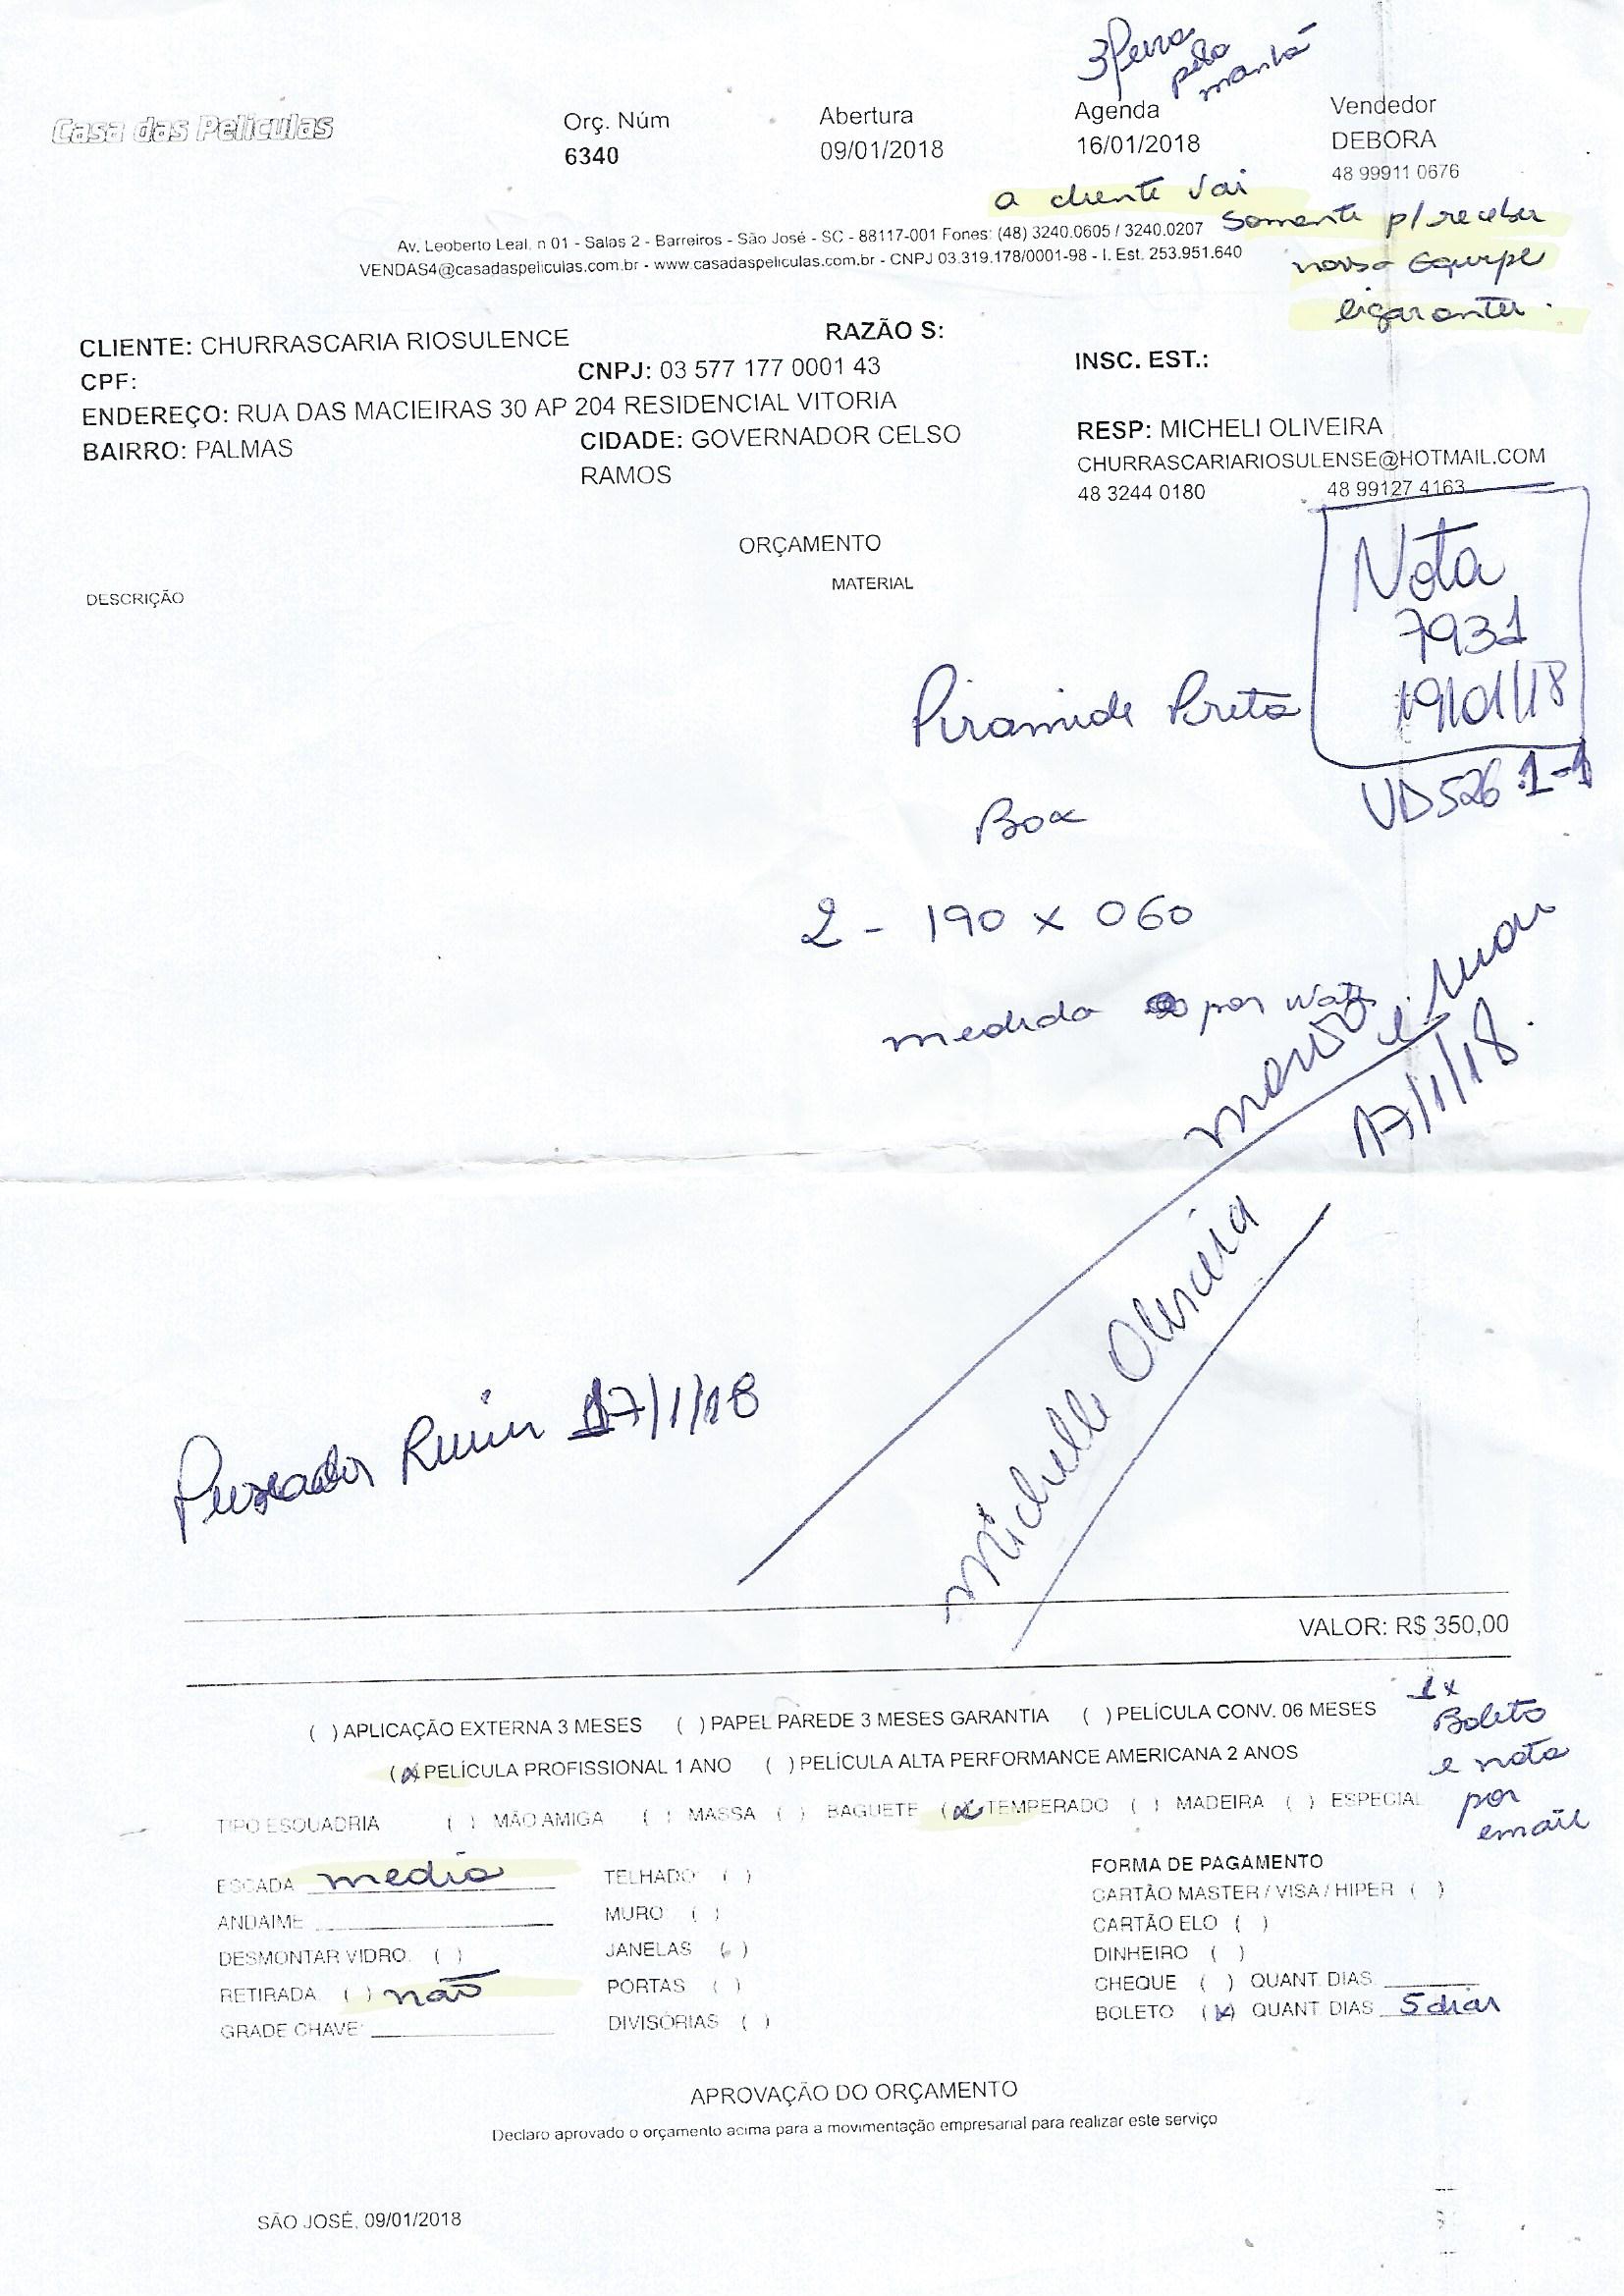 3ª feira
pela
manhã
Casa das Películas
Orç. Núm
6340
Abertura
09/01/2018
Agenda
16/01/2018
Vendedor
DEBORA
48 99911 0676
a cliente vai
somente p/ receber
nossa equipe
ligar antes.
Av. Leoberto Leal, n 01 - Salas 2 - Barreiros - São José - SC - 88117-001 Fones: (48) 3240.0605 / 3240.0207
VENDAS4@casadaspeliculas.com.br - www.casadaspeliculas.com.br - CNPJ 03.319.178/0001-98 - I. Est. 253.951.640
CLIENTE: CHURRASCARIA RIOSULENCE
RAZÃO S:
CPF:
CNPJ: 03 577 177 0001 43
INSC. EST.:
ENDEREÇO: RUA DAS MACIEIRAS 30 AP 204 RESIDENCIAL VITORIA
BAIRRO: PALMAS
CIDADE: GOVERNADOR CELSO
RAMOS
RESP: MICHELI OLIVEIRA
CHURRASCARIARIOSULENSE@HOTMAIL.COM
48 3244 0180
48 99127 4163
ORÇAMENTO
DESCRIÇÃO
MATERIAL
Nota
7931
19/01/18
Piramide Preta
VD526 1-1
Box
2 - 190 x 060
medida por
17/1/18.
Michelle Oliveira
Puxador 17/1/18
VALOR: R$ 350,00
( ) APLICAÇÃO EXTERNA 3 MESES ( ) PAPEL PAREDE 3 MESES GARANTIA ( ) PELÍCULA CONV. 06 MESES
(x) PELÍCULA PROFISSIONAL 1 ANO ( ) PELÍCULA ALTA PERFORMANCE AMERICANA 2 ANOS
1x
Boleto
e nota
por
email
TIPO ESQUADRIA ( ) MÃO AMIGA ( ) MASSA ( ) BAGUETE (x) TEMPERADO ( ) MADEIRA ( ) ESPECIAL
ESCADA media
ANDAIME
DESMONTAR VIDRO ( )
RETIRADA ( ) não
GRADE CHAVE
TELHADO ( )
MURO ( )
JANELAS ( )
PORTAS ( )
DIVISÓRIAS ( )
FORMA DE PAGAMENTO
CARTÃO MASTER / VISA / HIPER ( )
CARTÃO ELO ( )
DINHEIRO ( )
CHEQUE ( ) QUANT. DIAS
BOLETO (x) QUANT DIAS 5 dias
APROVAÇÃO DO ORÇAMENTO
Declaro aprovado o orçamento acima para a movimentação empresarial para realizar este serviço
SÃO JOSÉ, 09/01/2018